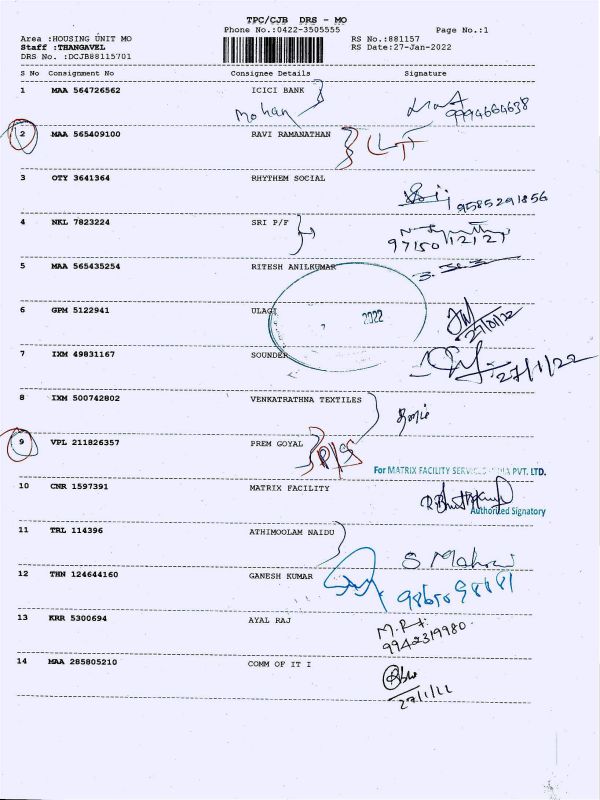 TPC/CJB DRS - MO
Phone No.:0422-3505555
Page No.:1
Area :HOUSING UNIT MO
RS No.:881157
Staff :THANGAVEL
RS Date:27-Jan-2022
DRS No. :DCJB88115701
S No Consignment No Consignee Details Signature
1 MAA 564726562 ICICI BANK
Mohan 9994664638
2 MAA 565409100 RAVI RAMANATHAN
3 OTY 3641364 RHYTHEM SOCIAL
9585291856
4 NKL 7823224 SRI P/F
9715012127
5 MAA 565435254 RITESH ANILKUMAR
6 GPM 5122941 ULAGI
2022
27/01/22
7 IXM 49831167 SOUNDER
27/1/22
8 IXM 500742802 VENKATRATHNA TEXTILES
9 VPL 211826357 PREM GOYAL
For MATRIX FACILITY SERVICES INDIA PVT. LTD.
10 CNR 1597391 MATRIX FACILITY
Authorized Signatory
11 TRL 114396 ATHIMOOLAM NAIDU
12 THN 124644160 GANESH KUMAR
13 KRR 5300694 AYAL RAJ
9942319980
14 MAA 285805210 COMM OF IT I
27/1/22